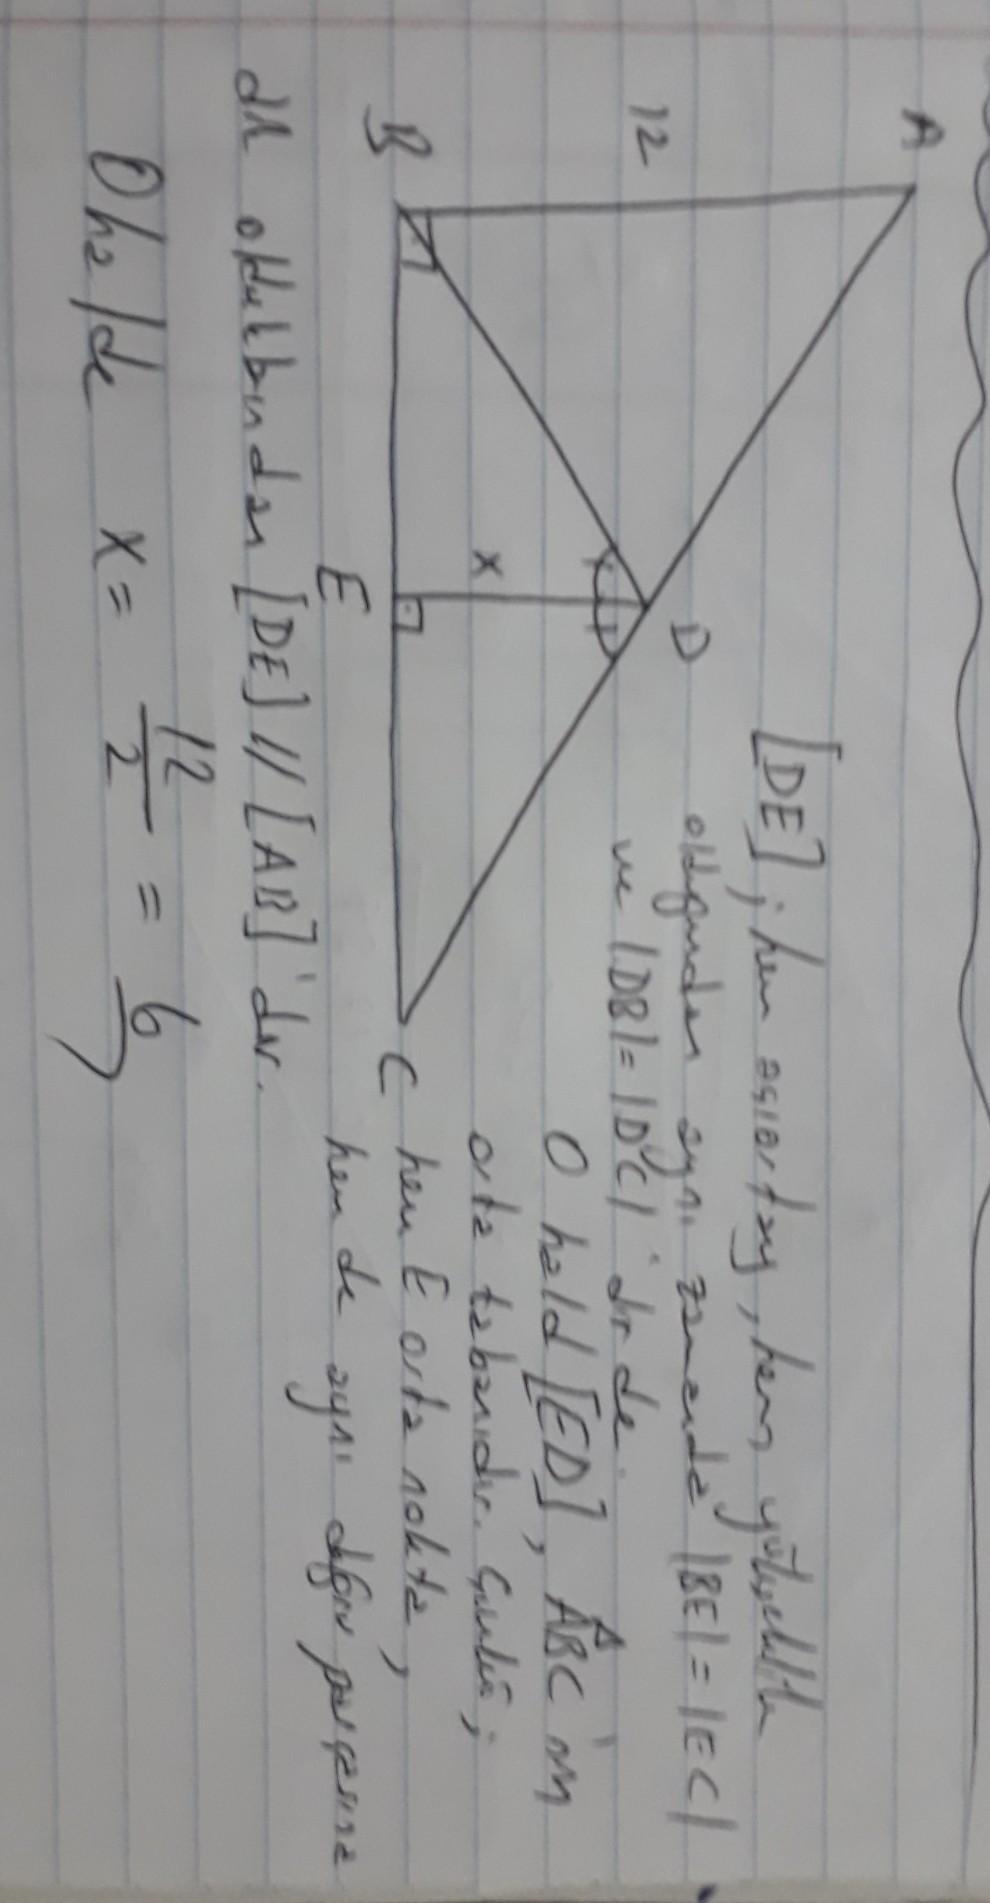 A
12
B
D
x
E
C
[DE]; hem açıortay, hem yükseklik
olduğundan aynı zamanda |BE| = |EC|
ve |DB| = |DC| 'dır da.
O hald [ED], ABC 'nın
orta tabanıdır. Çünkü;
hem E orta nokta,
hem de aynı doğru parçasına
dik olduklarından [DE] // [AB] 'dır.
O halde x = 12/2 = 6